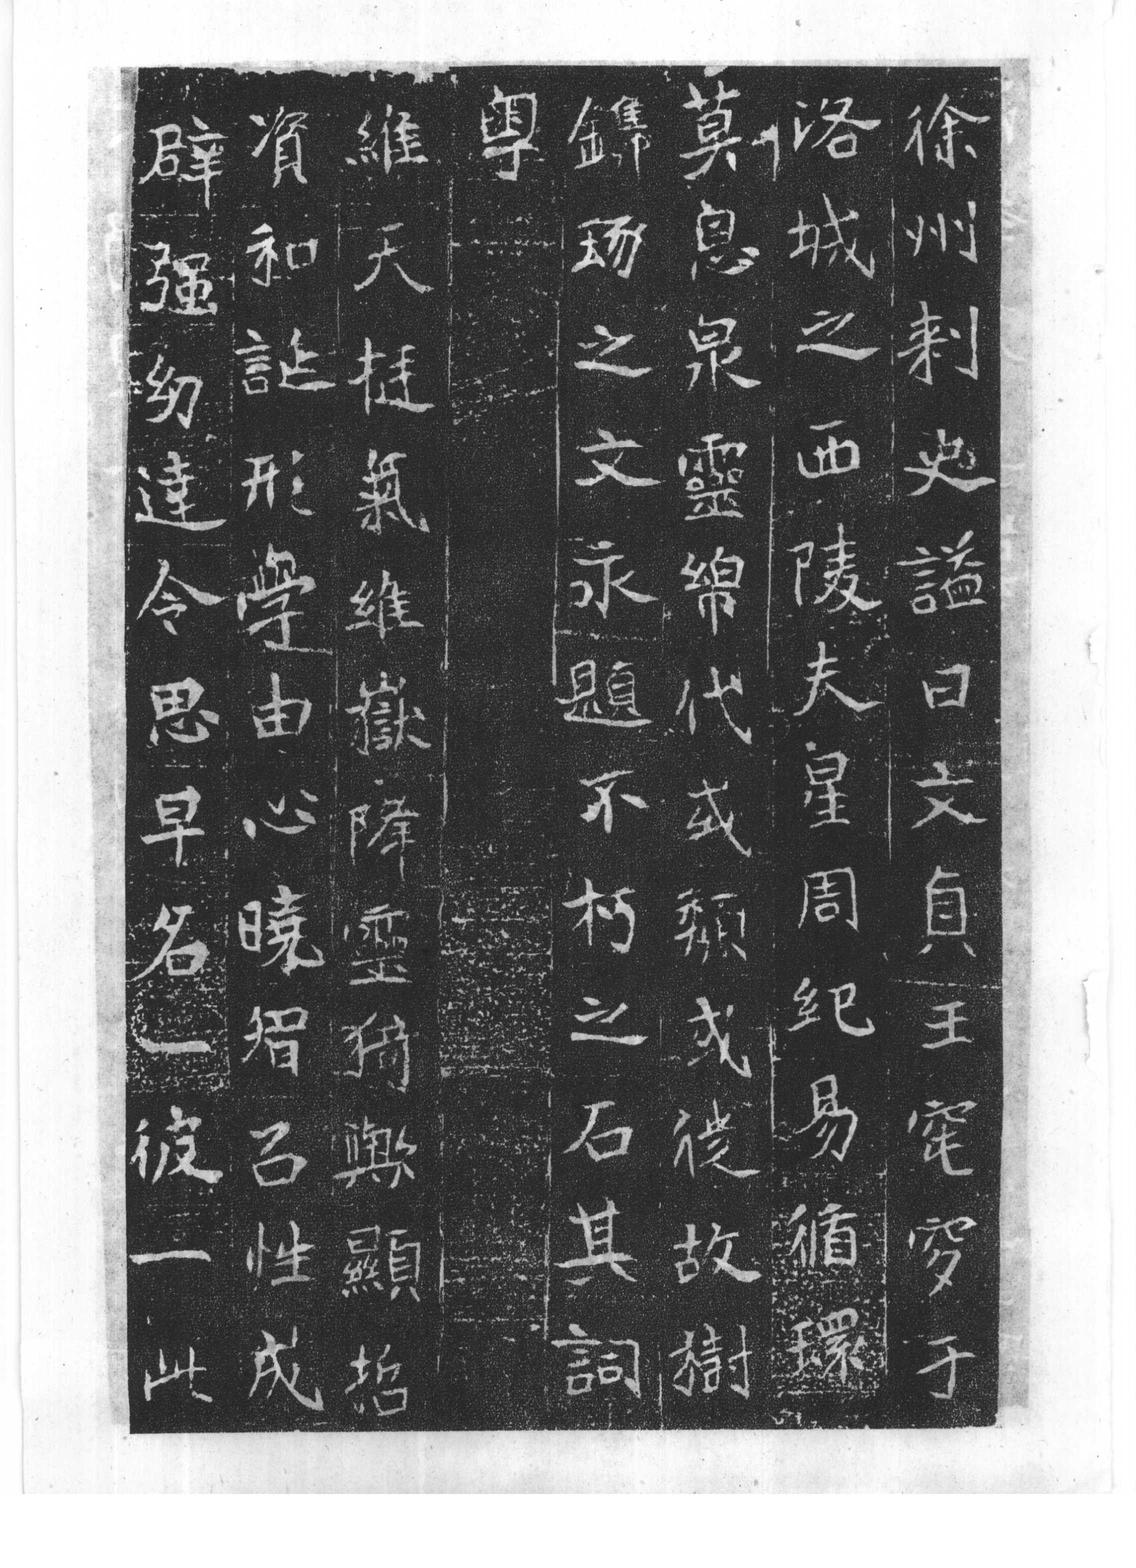 徐州刺史謚曰文貞王窀穸于
洛城之西陵夫星周紀易循環
莫息泉靈綿代或頽或徙故樹
鐫琢之文永題不朽之石其詞
粤
維天挺氣維嶽降靈猗歟顯哲
資和誕形學由心曉智召性成
辟强幼達令思早名一彼一此